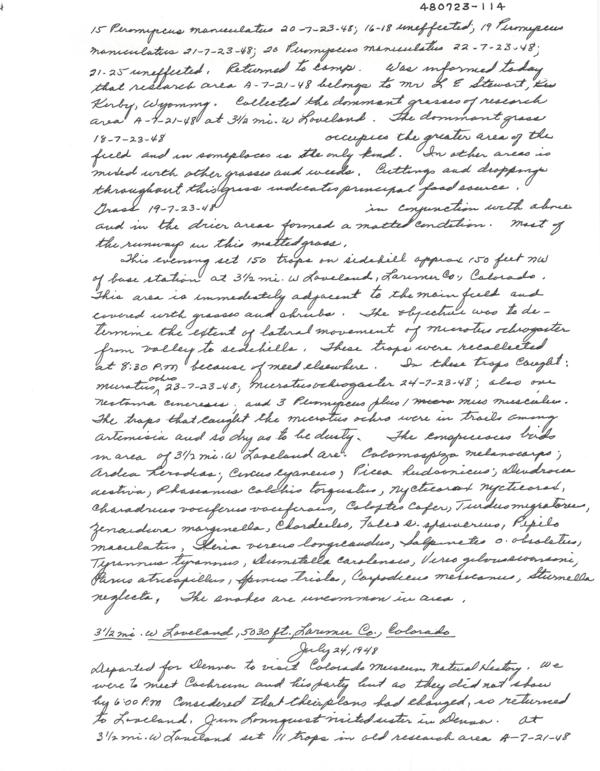 480723-114
15 Peromyscus maniculatus 20-7-23-48; 16-18 uneffected; 19 Peromyscus
maniculatus 21-7-23-48; 20 Peromyscus maniculatus 22-7-23-48;
21-25 uneffected. Returned to camp. Was informed today
that research area A-7-21-48 belongs to Mr L E Stewart,
Kirby, Wyoming. Collected the dominant grasses of research
area A-7-21-48 at 3½ mi. W Loveland. The dominant grass
18-7-23-48 occupies the greater area of the
field and in someplaces is the only kind. In other areas is
mixed with other grasses and weeds. Cuttings and droppings
throughout this grass indicates principal food source.
Grass 19-7-23-48 in conjunction with above
and in the drier areas formed a matted condition. Most of
the runways in this matted grass.
This evening set 150 traps on sidehill approx 150 feet NW
of base station at 3½ mi. W Loveland, Larimer Co., Colorado.
This area is immediately adjacent to the main field and
covered with grasses and shrubs. The objective was to de-
termine the extent of lateral movement of microtus ochrogaster
from valley to sidehills. These traps were recollected
at 8:30 P.M because of need elsewhere. In these traps caught:
ochro
23-7-23-48; Microtus ochrogaster 24-7-23-48; also one
neotoma cinerea; and 3 Peromyscus plus 1 mus musculus.
The traps that caught the microtus ochro were in trails among
artemisia and so dry as to be dusty. The conspicuous birds
in area of 3½ mi. W Loveland are: Calamospiza melanocorys;
Ardea herodias; Circus cyaneus; Pica hudsonicus; Dendroica
aestiva, Phasianus colchis torquatus, nycticorax nycticorax,
Charadrius vociferus vociferous, Colaptes cafer, Turdus migratorius,
Zenaidura marginella, Chordeiles, Falco s. sparverius, Pipilo
maculatus, Icteria virens longicaudus, Salpinctes o. obsoletus,
Tyrannus tyrannus, Dumetella carolensis, Vireo gilvus swansoni,
Parus atricapillus, Spinus tristis, Carpodicus mexicanus, Sturnella
neglecta. The snakes are uncommon in area.
3½ mi. W Loveland, 5030 ft., Larimer Co., Colorado
July 24, 1948
Departed for Denver to visit Colorado Museum Natural History. We
were to meet Cockrum and his party but as they did not show
by 6:00 P.M Considered that their plans had changed, so returned
to Loveland. Jim Lonnquist visited sister in Denver. At
3½ mi. W Loveland set 111 traps in old research area A-7-21-48